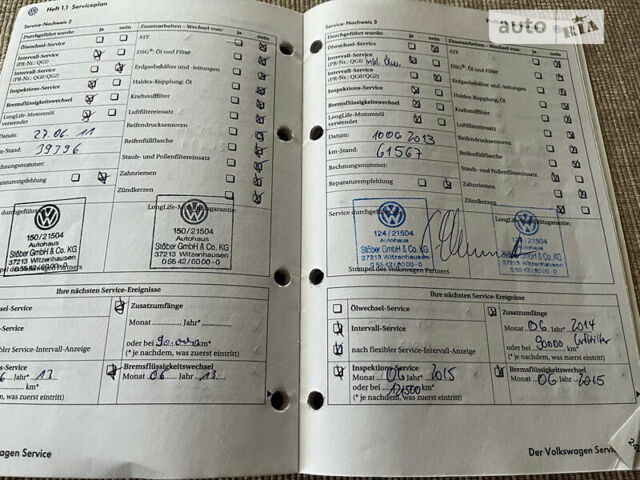 Heft 1.1 Serviceplan
Service-Nachweis 2
Durchgeführt wurde: ja nein
Zusatzarbeiten – Wechsel von: ja nein
Ölwechsel-Service
ATF
Intervall-Service
(PR-Nr.: QG1)
DSG®: Öl und Filter
Intervall-Service
(PR-Nr.: QG0/QG2)
Erdgasbehälter und -leitungen
Inspektions-Service
Haldex-Kupplung: Öl
Bremsflüssigkeitswechsel
Kraftstofffilter
LongLife-Motorenöl
verwendet
Luftfiltereinsatz
Datum: 27.06.11
Reifendrucksensoren
km-Stand: 39796
Reifenfüllflasche
Rechnungsnummer:
Staub- und Pollenfiltereinsatz
Reparaturempfehlung ja nein
Zahnriemen
Zündkerzen
durchgeführt
LongLife-Mobilitätsgarantie:
150/21504
Autohaus
Stöber GmbH & Co. KG
37213 Witzenhausen
0 55 42 / 60 00 - 0
150/21504
Autohaus
Stöber GmbH & Co. KG
37213 Witzenhausen
0 55 42 / 60 00 - 0
Stempel des Volkswagen Partners
Ihre nächsten Service-Ereignisse
Ölwechsel-Service
Zusatzumfänge
Monat Jahr*
Intervall-Service
oder bei 90.000 km*
nach flexibler Service-Intervall-Anzeige
(* je nachdem, was zuerst eintritt)
Inspektions-Service
06 13
Bremsflüssigkeitswechsel
Monat 06 Jahr 13
km*
(* je nachdem, was zuerst eintritt)
Volkswagen Service
Service-Nachweis 3
Durchgeführt wurde: ja nein
Zusatzarbeiten – Wechsel von: ja nein
Ölwechsel-Service
ATF
Intervall-Service
(PR-Nr.: QG1) inkl. Ölw.
DSG®: Öl und Filter
Intervall-Service
(PR-Nr.: QG0/QG2)
Erdgasbehälter und -leitungen
Inspektions-Service
Haldex-Kupplung: Öl
Bremsflüssigkeitswechsel
Kraftstofffilter
LongLife-Motorenöl
verwendet
Luftfiltereinsatz
Datum: 10 06 2013
Reifendrucksensoren
km-Stand: 61567
Reifenfüllflasche
Rechnungsnummer:
Staub- und Pollenfiltereinsatz
Reparaturempfehlung ja nein
Zahnriemen
Zündkerzen
Service durchgeführt
LongLife-Mobilitätsgarantie:
124/21504
Autohaus
Stöber GmbH & Co. KG
37213 Witzenhausen
0 55 42 / 60 00 - 0
21504
Autohaus
Stöber GmbH & Co. KG
37213 Witzenhausen
0 55 42 / 60 00 - 0
Stempel des Volkswagen Partners
Ihre nächsten Service-Ereignisse
Ölwechsel-Service
Zusatzumfänge
Monat 06 Jahr* 2014
Intervall-Service
oder bei 90000 km*
nach flexibler Service-Intervall-Anzeige
(* je nachdem, was zuerst eintritt)
Inspektions-Service
Monat 06 Jahr* 2015
Bremsflüssigkeitswechsel
Monat 06 Jahr 2015
oder bei 121500 km*
(* je nachdem, was zuerst eintritt)
Der Volkswagen Service
auto RIA